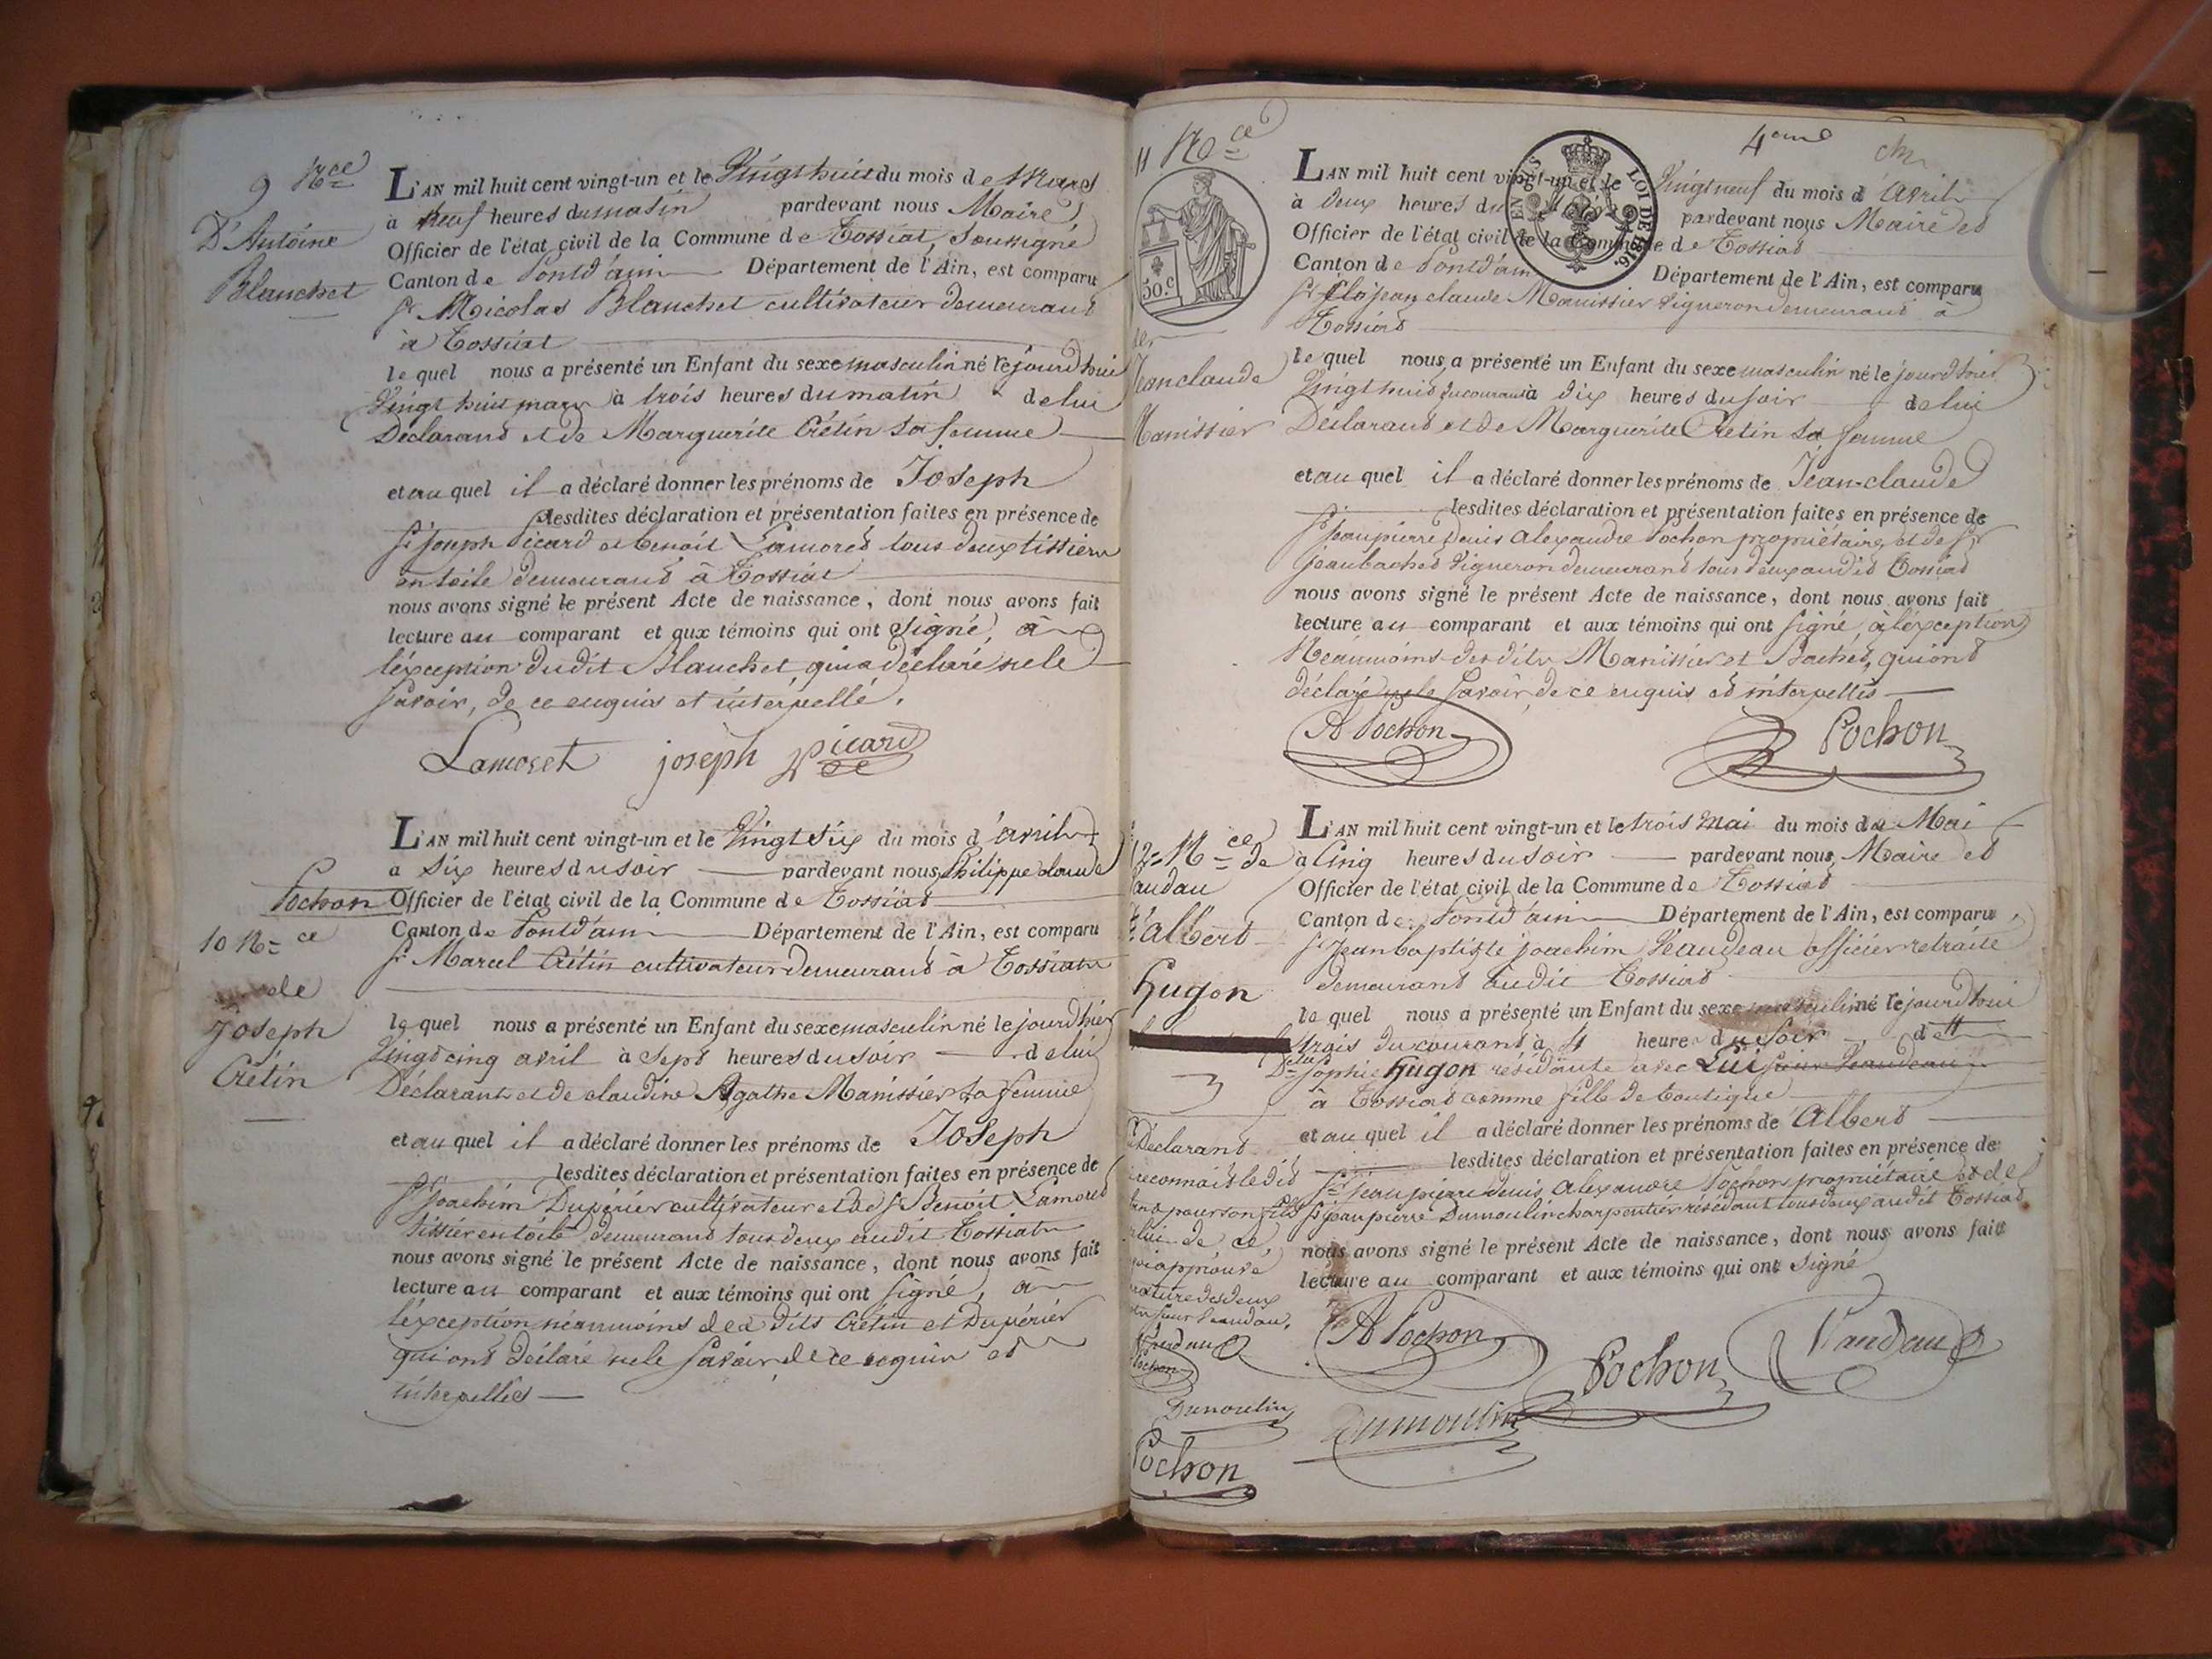 9 Nce
D'Antoine
Blanchet
L'AN mil huit cent vingt-un et le Vingt huit du mois de Mars
à neuf heures du matin pardevant nous Maire
Officier de l'état civil de la Commune de Tossiat, soussigné
Canton de Pontd'ain Département de l'Ain, est comparu
Sr Nicolas Blanchet cultivateur demeurant
à Tossiat
lequel nous a présenté un Enfant du sexe masculin né le jourd'huis
Vingt huit mars à trois heures du matin de lui
Déclarant et de Marguerite Crétin sa femme
et au quel il a déclaré donner les prénoms de Joseph
lesdites déclaration et présentation faites en présence de
Sr Joseph Picard et Benoit Lamoret tous deux tissiers
en toile demeurant à Tossiat
nous avons signé le présent Acte de naissance, dont nous avons fait
lecture au comparant et aux témoins qui ont signé, à
l'éxception dudit Blanchet, qui a déclaré ne le
savoir, de ce enquis et interpellé.
Lamoret joseph picard
Pochon
10 Nce
de
Joseph
Crétin
L'AN mil huit cent vingt-un et le Vingt six du mois d'avril
à six heures du soir pardevant nous Philippe claude
Officier de l'état civil de la Commune de Tossiat
Canton de Pontd'ain Département de l'Ain, est comparu
Sr Marcel Crétin cultivateur demeurant à Tossiat
lequel nous a présenté un Enfant du sexe masculin né le jourd'hier
Vingt cinq avril à sept heures du soir de lui
Déclarant et de claudine Agathe Manissier sa femme
et au quel il a déclaré donner les prénoms de Joseph
lesdites déclaration et présentation faites en présence de
Sr Joachim Dupérier cultivateur et de Sr Benoit Lamoret
tissier en toile demeurant tous deux audit Tossiat
nous avons signé le présent Acte de naissance, dont nous avons fait
lecture au comparant et aux témoins qui ont signé, à
l'éxception néanmoins des dits Crétin et Dupérier
qui ont déclaré ne le savoir, de ce requis et
interpellés
11 Nce
4eme
50.c
EN SUS
LOI DE 1816.
de
Jean claude
Manissier
L'AN mil huit cent vingt-un et le Vingt neuf du mois d'avril
à deux heures du pardevant nous Maire et
Officier de l'état civil de la Commune de Tossiat
Canton de Pontd'ain Département de l'Ain, est comparu
Sr jean claude Manissier vigneron demeurant à
Tossiat
lequel nous a présenté un Enfant du sexe masculin né le jourd'hier
Vingt huit du courant à dix heures du soir de lui
Déclarant et de Marguerite Crétin sa femme
et au quel il a déclaré donner les prénoms de Jean-claude
lesdites déclaration et présentation faites en présence de
Sr Jeanpierre denis alexandre Pochon propriétaire, et de Sr
jean bachet vigneron demeurant tous deux audit Tossiat
nous avons signé le présent Acte de naissance, dont nous avons fait
lecture au comparant et aux témoins qui ont signé, à l'éxception
Néanmoins des dits Manissier et Bachet, qui ont
déclaré ne le savoir, de ce enquis et interpellés
A Pochon Pochon
12e Nce de
audau
albert
hugon
L'AN mil huit cent vingt-un et le trois mai du mois de Mai
à Cinq heures du soir pardevant nous, Maire et
Officier de l'état civil de la Commune de Tossiat
Canton de Pontd'ain Département de l'Ain, est comparu
Sr Jean baptiste joachim Veaudeau officier retraité
demeurant audit Tossiat
lequel nous a présenté un Enfant du sexe masculin né le jourd'hui
trois du courant à 4 heures du soir de
Dlle Sophie hugon résidante avec Lui
à Tossiat comme fille de boutique
et au quel il a déclaré donner les prénoms de albert
lesdites déclaration et présentation faites en présence de
Sr jean pierre denis alexandre Pochon propriétaire et de
Sr jean pierre Dumoulin charpentier résidant tous deux audit Tossiat
nous avons signé le présent Acte de naissance, dont nous avons fait
lecture au comparant et aux témoins qui ont signé
A Pochon Pochon Vaudau
Dumoulin
Déclarant
reconnait ledit
pour son fils
de ce,
approuve
des deux
Pochon
Dumoulin
Pochon